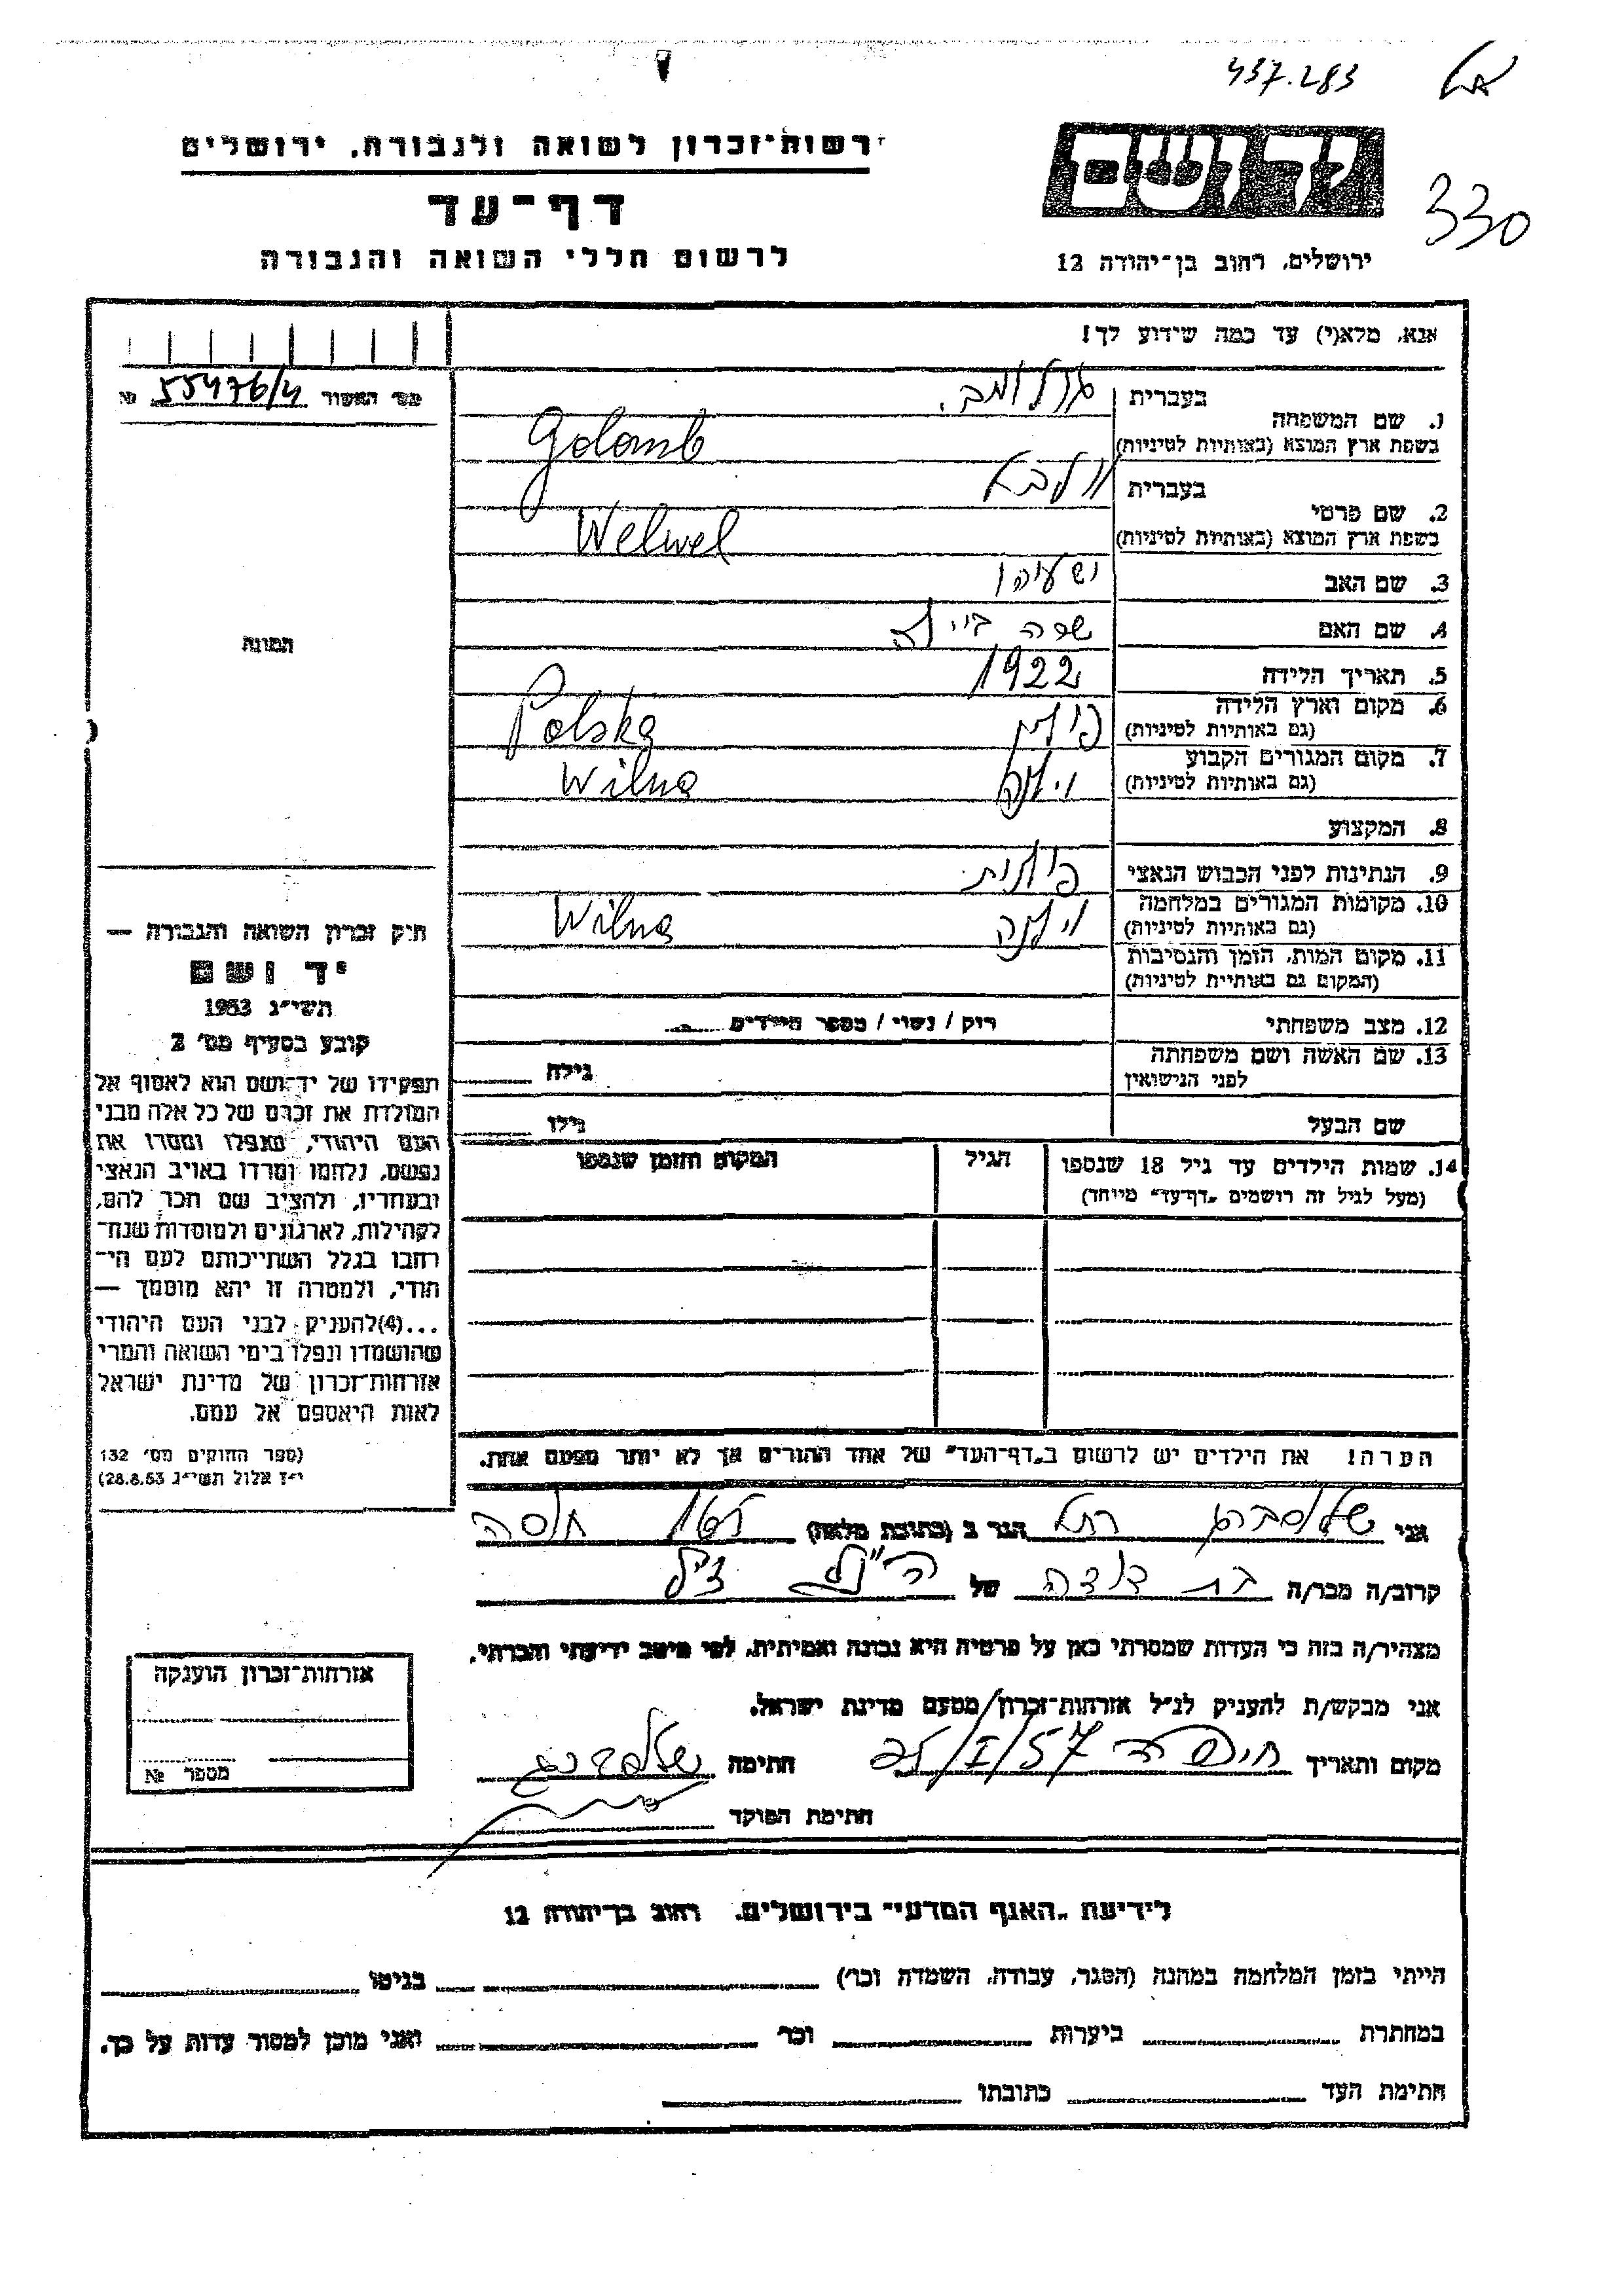 437.283
330
רשות־זכרון לשואה ולגבורה, ירושלים
דף־עד
לרשום חללי השואה והגבורה
יד ושם
ירושלים, רחוב בן־יהודה 12
אנא, מלא(י) עד כמה שידוע לך!
מס׳ האשור 55476/4 №
1. שם המשפחה
בעברית גולומב.
בשפת ארץ המוצא (באותיות לטיניות) Golomb
2. שם פרטי
בעברית
בשפת ארץ המוצא (באותיות לטיניות) Welwel
3. שם האב ישעיהו
4. שם האם שרה ביילה
5. תאריך הלידה 1922
6. מקום וארץ הלידה (גם באותיות לטיניות) פולין Polska
7. מקום המגורים הקבוע (גם באותיות לטיניות) וילנה Wilna
8. המקצוע
9. הנתינות לפני הכבוש הנאצי פולנית
10. מקומות המגורים במלחמה (גם באותיות לטיניות) וילנה Wilna
11. מקום המות, הזמן והנסיבות (המקום גם באותיות לטיניות)
12. מצב משפחתי רוק / נשוי / מספר הילדים
13. שם האשה ושם משפחתה לפני הנישואין גילה
שם הבעל גילו
14. שמות הילדים עד גיל 18 שנספו
(מעל לגיל זה רושמים „דף־עד" מיוחד)
הגיל
המקום והזמן שנספו
הערה! את הילדים יש לרשום ב„דף־העד" של אחד ההורים אך לא יותר מפעם אחת.
התמונה
חוק זכרון השואה והגבורה —
יד ושם
תשי״ג 1953
קובע בסעיף מס׳ 2
תפקידו של יד־ושם הוא לאסוף אל
המולדת את זכרם של כל אלה מבני
העם היהודי, שנפלו ומסרו את
נפשם, נלחמו ומרדו באויב הנאצי
ובעוזריו, ולהציב שם וזכר להם,
לקהילות, לארגונים ולמוסדות שנח־
רבו בגלל השתייכותם לעם הי־
הודי, ולמטרה זו יהא מוסמך —
...(4)להעניק לבני העם היהודי
שהושמדו ונפלו בימי השואה והמרי
אזרחות־זכרון של מדינת ישראל
לאות היאספם אל עמם.
(ספר החוקים מס׳ 132
י״ז אלול תשי״ג 28.8.53)
אני רחל הגר ב (כתובת מלאה)
קרוב/ה מכר/ה בת דודה של הנ״ל
מצהיר/ה בזה כי העדות שמסרתי כאן על פרטיה היא נכונה ואמיתית, לפי מיטב ידיעתי והכרתי.
אני מבקש/ת להעניק לנ״ל אזרחות־זכרון/מטעם מדינת ישראל.
מקום ותאריך חיפה 25/I/57 חתימה
חתימת הפוקד
אזרחות־זכרון הוענקה
מספר №
לידיעת „האגף המדעי" בירושלים. רחוב בן־יהודה 12
הייתי בזמן המלחמה במחנה (הסגר, עבודה, השמדה וכו׳) בגיטו
במחתרת ביערות וכו׳ ואני מוכן למסור עדות על כך.
חתימת העד כתובתו